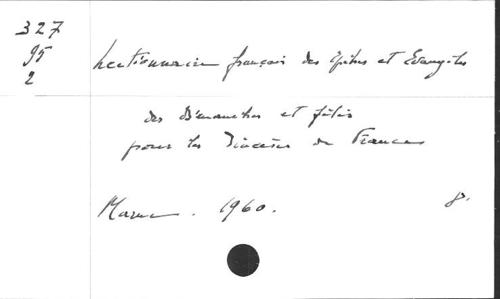 327
95
2
Lectionnaire français des Epitres et Evangiles
des Dimanches et fêtes
pour les Diocèses de France
Mame . 1960.
8.